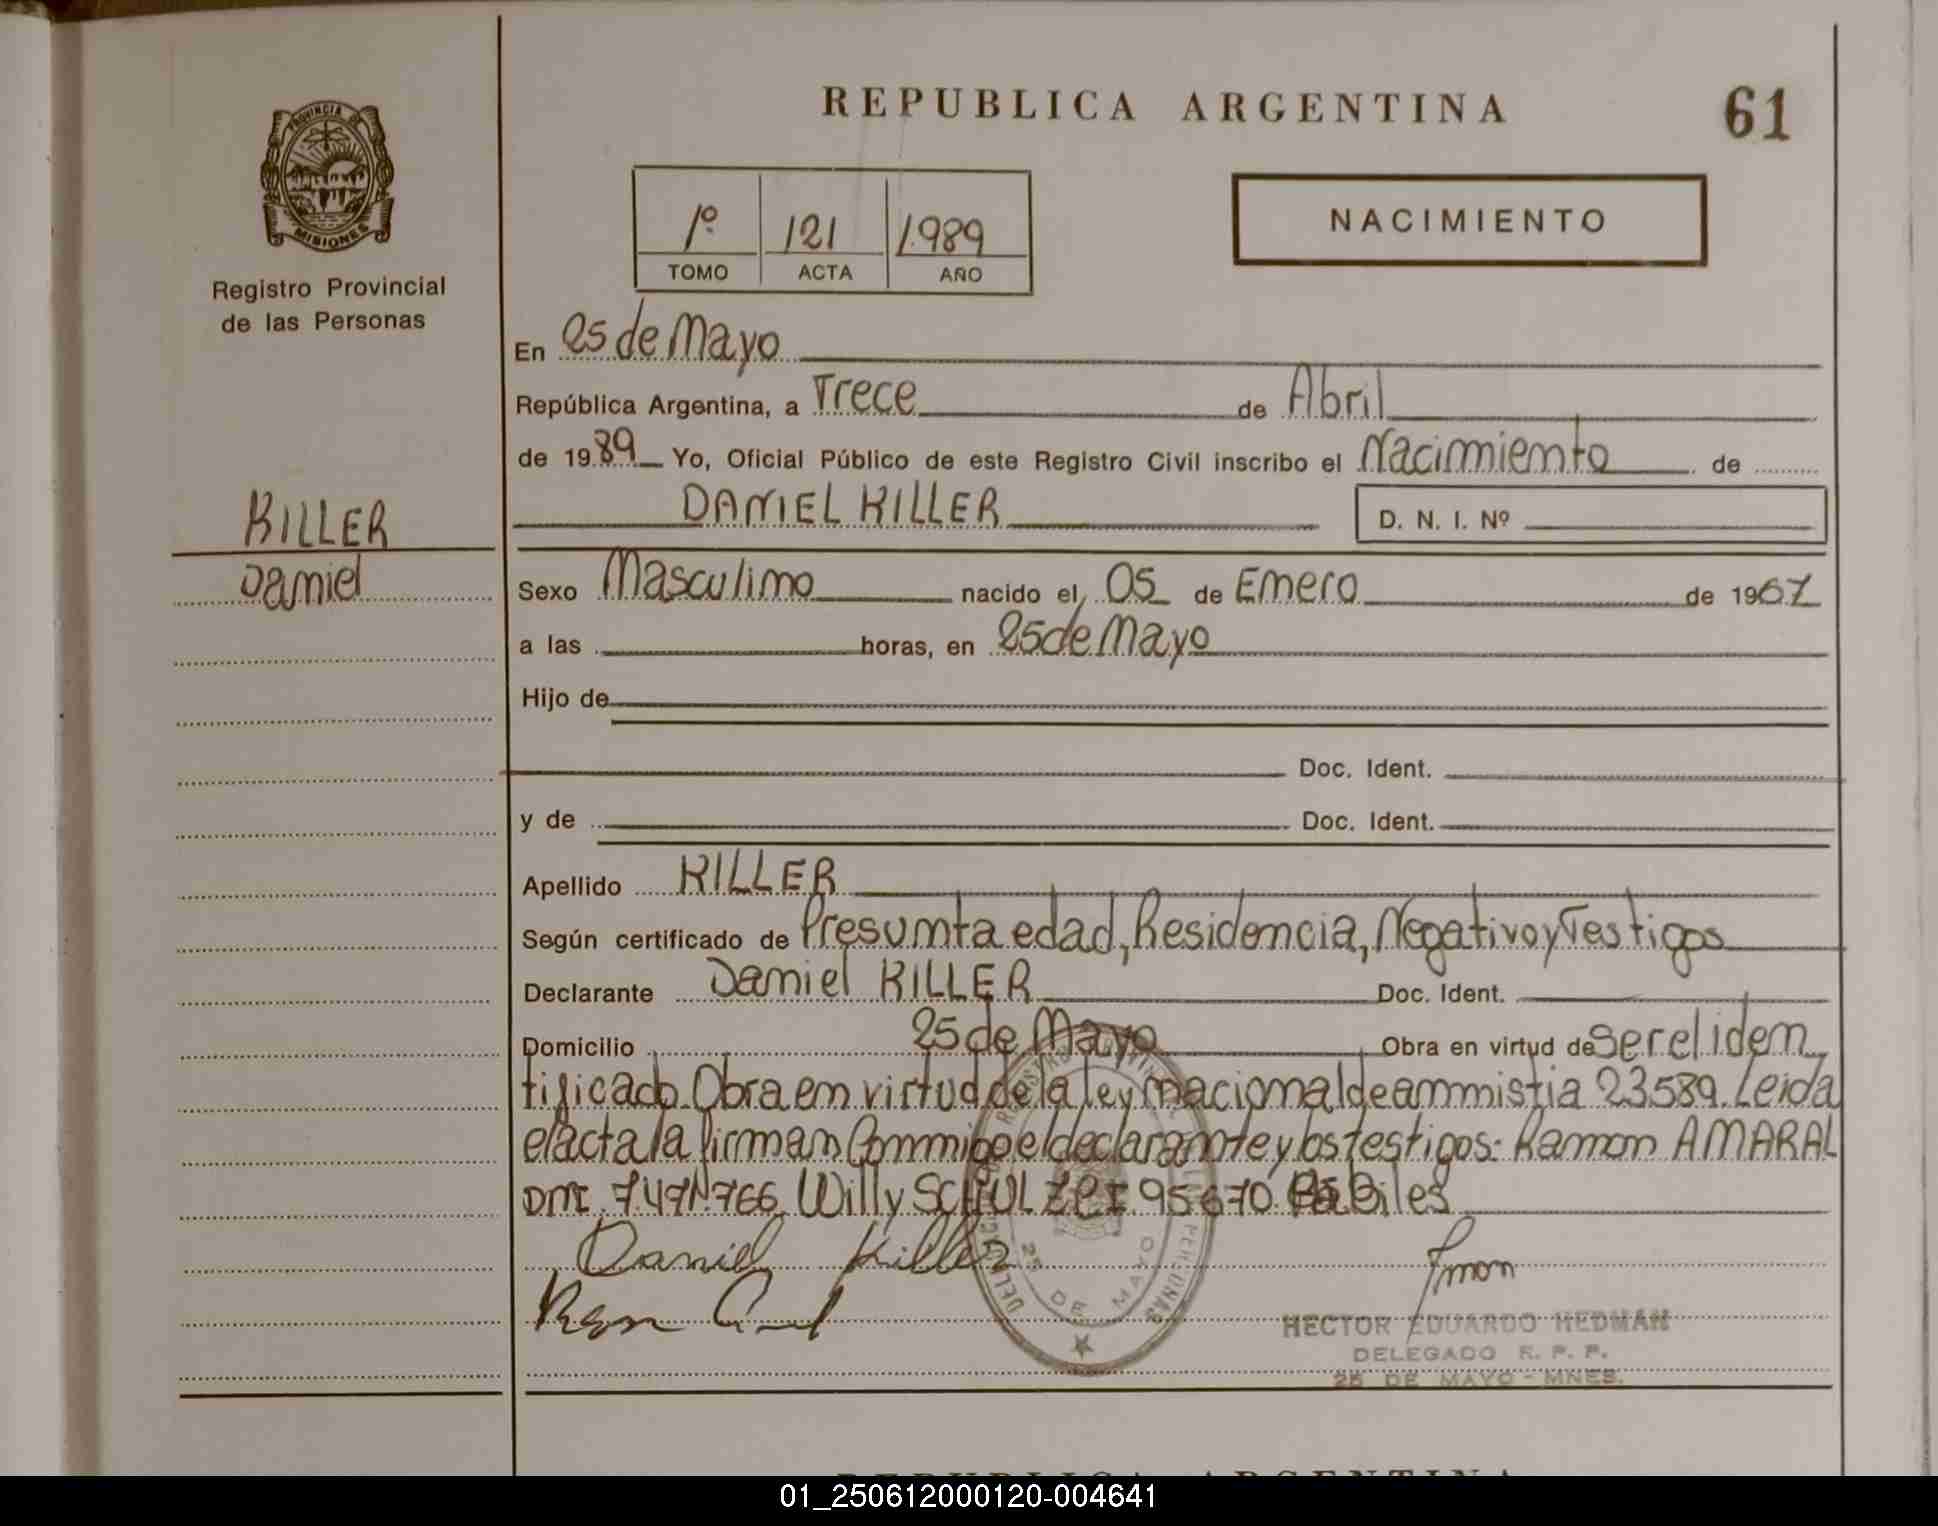 REPUBLICA ARGENTINA
61
PROVINCIA DE
MISIONES
Registro Provincial
de las Personas
1º 121 1989
TOMO ACTA AÑO
NACIMIENTO
En 25 de Mayo
República Argentina, a Trece de Abril
de 1989 Yo, Oficial Público de este Registro Civil inscribo el Nacimiento de
DANIEL KILLER
D. N. I. Nº
KILLER
Daniel
Sexo Masculino nacido el 05 de Enero de 1967
a las horas, en 25 de Mayo
Hijo de
Doc. Ident.
y de Doc. Ident.
Apellido KILLER
Según certificado de Presunta edad, Residencia, Negativo y Testigos
Declarante Daniel KILLER Doc. Ident.
Domicilio 25 de Mayo Obra en virtud de ser el iden
tificado. Obra en virtud de la ley nacional de amnistia 23589. Leida
el acta la firman Conmigo el declarante y los testigos: Ramon AMARAL
DNI. 7.471.766 Willy SCHULZ CI. 95670 Habiles
Daniel Killer
25 DE MAYO
HECTOR EDUARDO HEDMAN
DELEGADO R. P. P.
25 DE MAYO - MNES.
REPUBLICA ARGENTINA
01_250612000120-004641